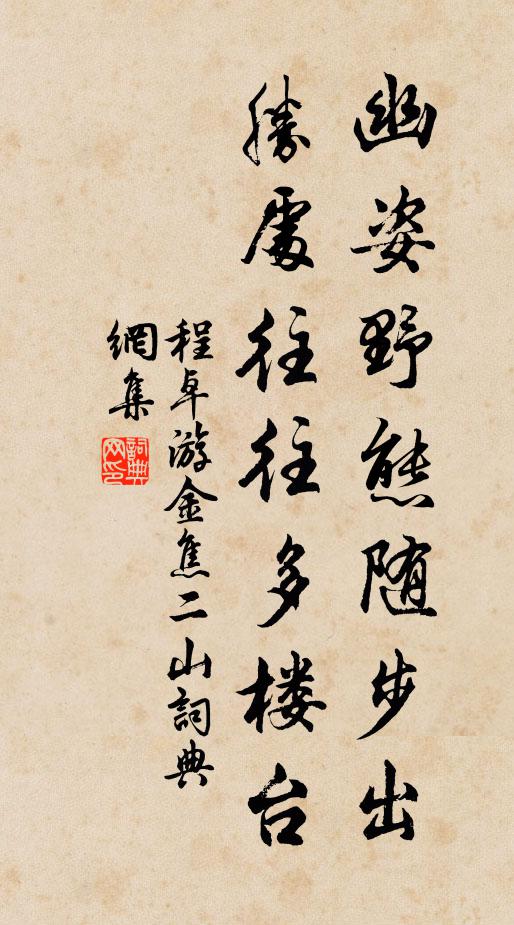 幽姿野態随步出
勝處往往多楼台
程卓游金焦二山詞典
網集
詞典
网印